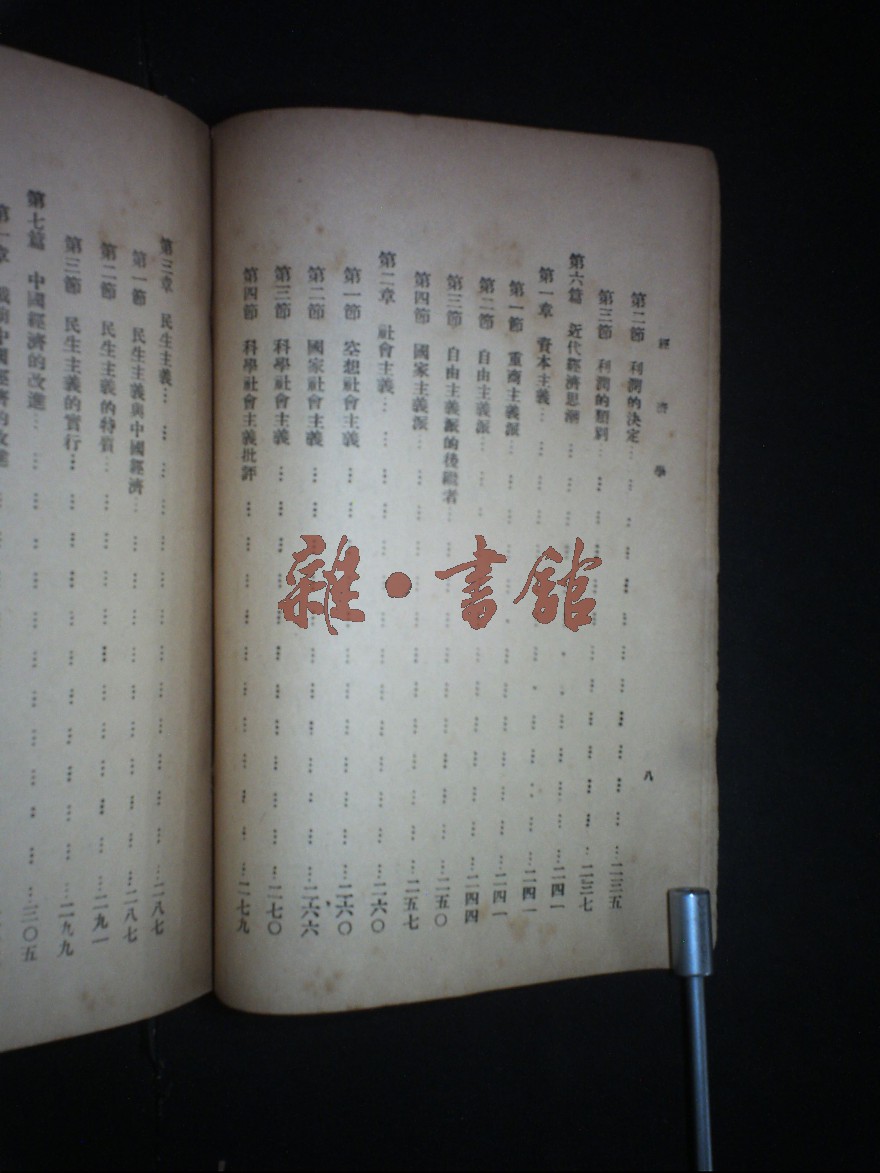 經濟學
八
第二節 利潤的決定……二三五
第三節 利潤的類別……二三七
第六篇 近代經濟思潮……二四一
第一章 資本主義……二四一
第一節 重商主義派……二四一
第二節 自由主義派……二四四
第三節 自由主義派的後繼者……二五〇
第四節 國家主義派……二五七
第二章 社會主義……二六〇
第一節 空想社會主義……二六〇
第二節 國家社會主義……二六六
第三節 科學社會主義……二七〇
第四節 科學社會主義批評……二七九
第三章 民生主義……二八七
第一節 民生主義與中國經濟……二八七
第二節 民生主義的特質……二九一
第三節 民生主義的實行……二九九
第七篇 中國經濟的改進……三〇五
第一章 戰前中國經濟的改進
雜·書館